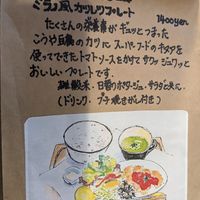 ミラノ風カツレツプレート
1400yen
たくさんの栄養素がギュッとつまった
こうや豆腐のカツにスーパーフードのキヌアを
使ってできたトマトソースをかけてサクッジュワッと
おいしいプレートです。
雑穀米、日替りポタージュ、サラダと共に。
(ドリンク・プチ焼きがし付き)